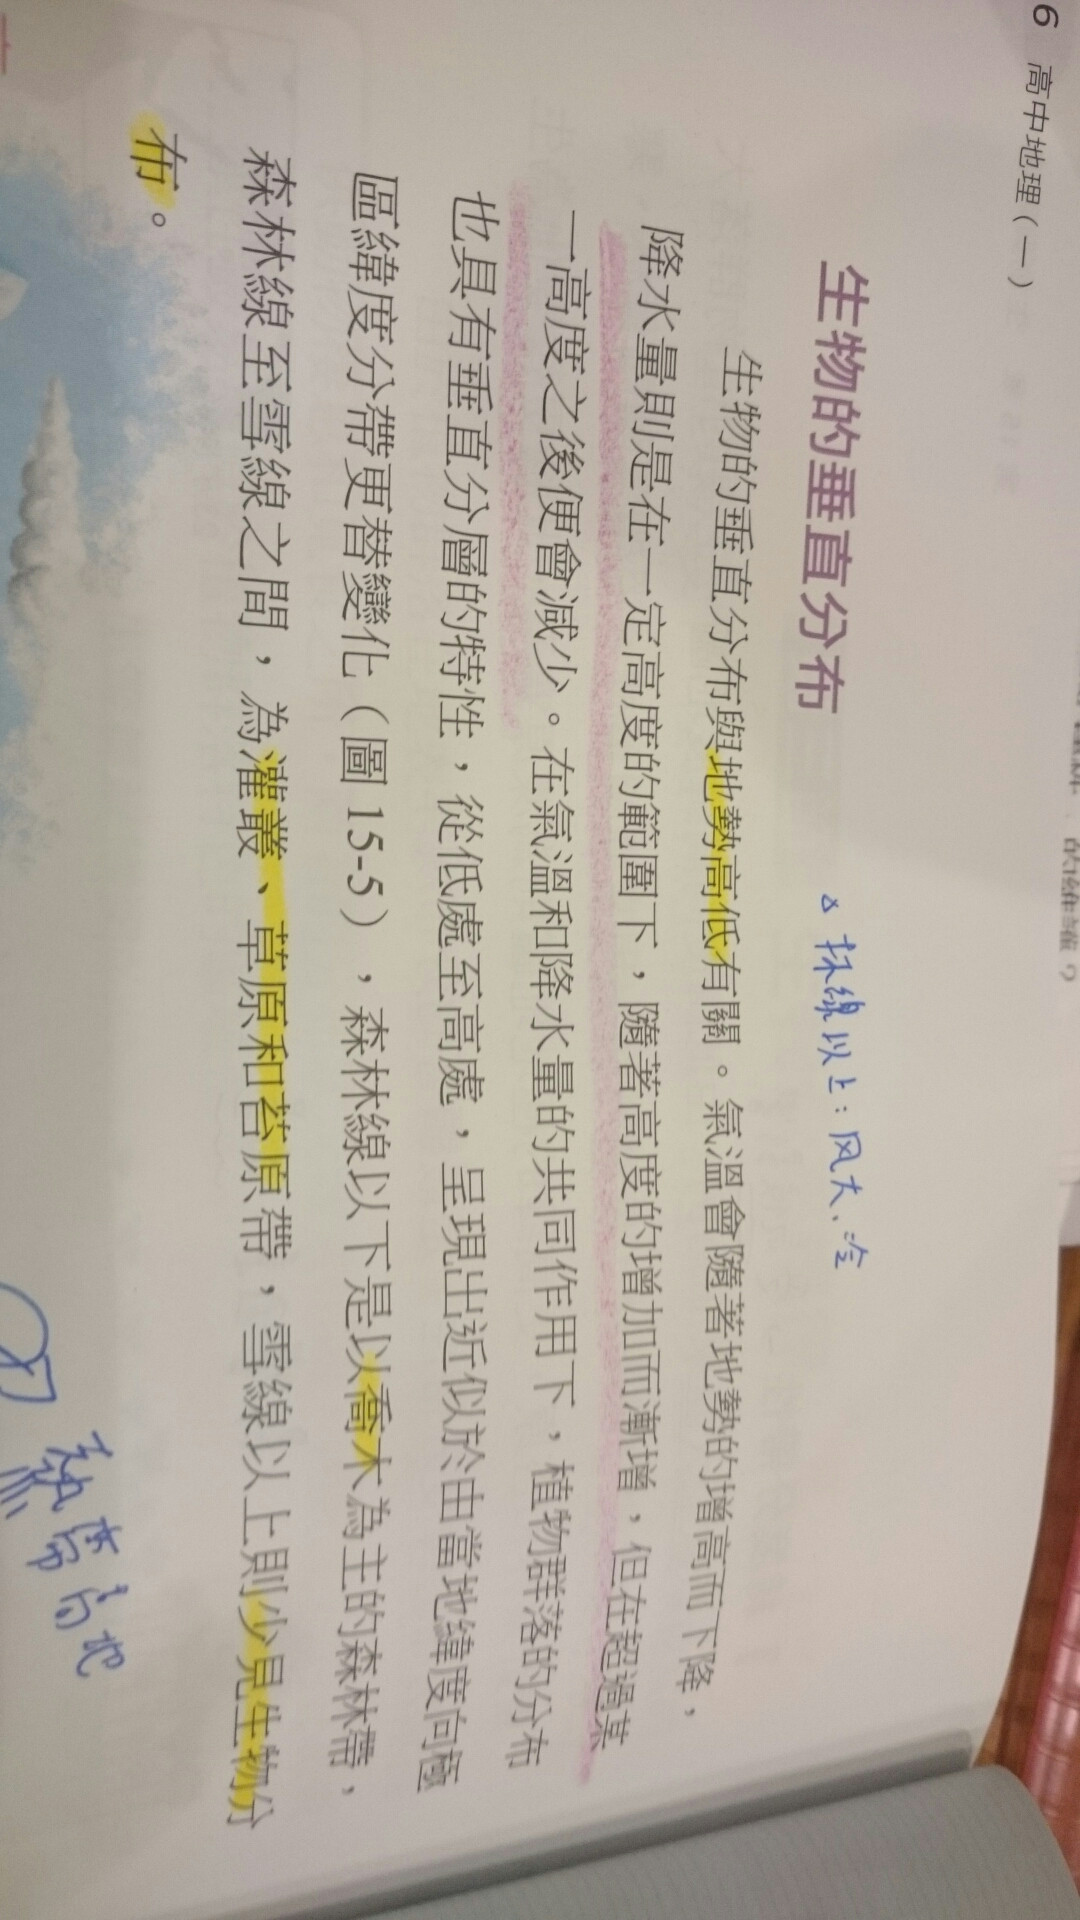 6 高中地理（一）
生物的垂直分布
△林線以上：风大、冷
生物的垂直分布與地勢高低有關。氣溫會隨著地勢的增高而下降，
降水量則是在一定高度的範圍下，隨著高度的增加而漸增，但在超過某
一高度之後便會減少。在氣溫和降水量的共同作用下，植物群落的分布
也具有垂直分層的特性，從低處至高處，呈現出近似於由當地緯度向極
區緯度分帶更替變化（圖 15-5），森林線以下是以喬木為主的森林帶，
森林線至雪線之間，為灌叢、草原和苔原帶，雪線以上則少見生物分
布。
熱帶高地